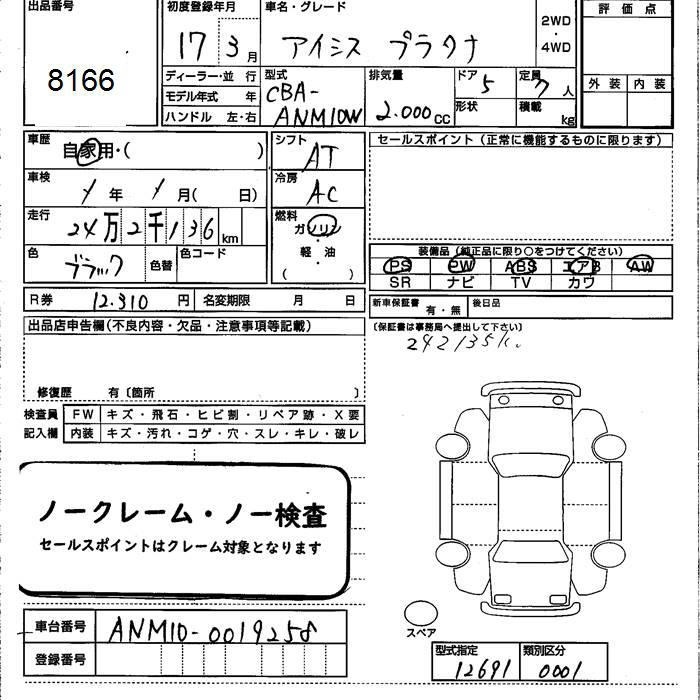 出品番号 初度登録年月 車名・グレード 評価点
8166 17 3月 アイシス プラタナ 2WD・4WD
ディーラー・並行 型式 排気量 ドア 定員 外装 内装
モデル年式 年 CBA-ANM10W 2.000cc 5 7人
ハンドル 左・右 形状 積載 kg
車歴 自家用・( ) シフト AT セールスポイント(正常に機能するものに限ります)
車検 年 月( 日) 冷房 AC
走行 24万2千136km 燃料 ガソリン
軽・油
( )
色 ブラック 色替 色コード
装備品(純正品に限り○をつけてください)
PS PW ABS エアB AW
SR ナビ TV カワ
R券 12.310円 名変期限 月 日 新車保証書 有・無 後日品
出品店申告欄(不良内容・欠品・注意事項等記載) (保証書は事務局へ提出して下さい)
修復歴 有〔箇所 〕
検査員 FW キズ・飛石・ヒビ割・リペア跡・X要
記入欄 内装 キズ・汚れ・コゲ・穴・スレ・キレ・破レ
ノークレーム・ノー検査
セールスポイントはクレーム対象となります
車台番号 ANM10-0019258
登録番号
スペア
型式指定 類別区分
12691 0001